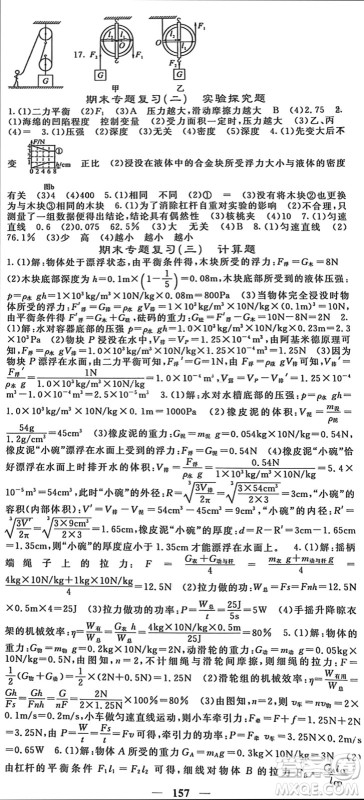 17. F₁ F₂
G G G
甲 乙
期末专题复习(二) 实验探究题
1.(1)二力平衡 (2)F₁ (3)A 压力越大,滑动摩擦力越大 B (4)2.75 2.
(1)海绵的凹陷程度 控制变量 (2)受力面积一定时,压力越大 (3)乙、丙
(4)= 3.(1)压强 (2)深度 (3)无关 (4)密度 (5)深度 4.(1)先变大后不
变 F/N h/cm 正比 (2)浸没在液体中的合金块所受浮力大小与液体的密度
图b
有关 (3)4 (4)400 5.(1)相同 不同 (2)① = (3)没有将木块②也更换
为与木块①相同的木块 6.(1)为了消除杠杆自重对实验的影响 (2)不合理,只
测量了一组数据便得出结论,结论具有偶然性 (3)核桃夹 (4)10 7.(1)匀速
直线 0.6 (2)0.075 62.5% (3)①大 ②无关 (4)B 8.(1)匀速直线 (2)
76.1% (3)少 高 (4)越小 越小 越小
期末专题复习(三) 计算题
1.(1)解:物体处于漂浮状态,由平衡条件得,木块所受的浮力:F浮=G木=8N
(2)木块底部深度为 h=0.1m×(1-1/5)=0.08m,木块底部所受到的液体压强:
p=ρ水gh=1×10³kg/m³×10N/kg×0.08m=800Pa (3)当物体完全浸没时物
体所受的浮力:F′浮=ρ水gV′排=1.0×10³kg/m³×10N/kg×(0.1m)³=10N,
由平衡条件得:F′浮=G木+G码,砝码的重力:G码=F′浮-G木=10N-8N=2N 2.
(1)解:水对容器底部的压强 p=ρ水gh=1.0×10³kg/m³×10N/kg×0.23m=2.3
×10³Pa (2)物块P浸没在水中,V排=VP=1.25×10⁻⁴m³,由阿基米德原理可
知,F浮=ρ水gV排=1.0×10³kg/m³×10N/kg×1.25×10⁻⁴m³=1.25N (3)因为
物块P漂浮在水面,由二力平衡可知,F浮′=G=1N,由 F浮=ρ水gV排可知,V排′=
F浮′/ρ水g=1N/1.0×10³kg/m³×10N/kg=1.0×10⁻⁴m³,V露=VP-V排′=1.25×10⁻⁴
m³-1.0×10⁻⁴m³=2.5×10⁻⁵m³ 3.(1)解:水对水槽底部的压强:p=ρ水gh=
1.0×10³kg/m³×10N/kg×0.1m=1000Pa (2)橡皮泥的体积:V泥=m泥/ρ泥=
54g/1.2g/cm³=45cm³ (3)橡皮泥的重力:G泥=m泥g=0.054kg×10N/kg=0.54N,
橡皮泥“小碗”漂浮在水面上受到的浮力:F浮=G泥=0.54N (4)橡皮泥“小碗”恰
好漂浮在水面上时排开水的体积:V排=F浮/ρ水g=0.54N/1.0×10³kg/m³×10N/kg=5.4×
10⁻⁵m³=54cm³,此时“小碗”的外径:R=∛(3V排/2π)=∛(3×54cm³/2×3)=3cm,“小碗”的
容积(内体积):V′=V排-V泥=54cm³-45cm³=9cm³,“小碗”的内径:R′=
∛(3V′/2π)=∛(3×9cm³/2×3)=1.65cm,橡皮泥“小碗”的厚度:d=R-R′=3cm-1.65cm
=1.35cm,则“小碗”的厚度应小于1.35cm才能漂浮在水面上。 4.(1)解:摇柄
端绳子上的拉力:F=G衣+G动与杆/4=m衣g+m动与杆g/4=
4kg×10N/kg+1kg×10N/kg/4=12.5N (2)拉力做的功:W总=Fs=Fnh=12.5N
×0.5m×4=25J (3)拉力做功的功率:P=W总/t=25J/5s=5W (4)手摇升降晾衣
架的机械效率:η=W有/W总=G衣h/W总=4kg×10N/kg×0.5m/25J=80% 5.(1)解:物体的
重力:G物=m物g=0.2kg×10N/kg=2N,动滑轮的重力:G动=m动g=0.05kg×
10N/kg=0.5N,由图知,n=2,不计细绳与滑轮间摩擦,则细绳的拉力:F=
1/2(G物+G动)=1/2×(2N+0.5N)=1.25N (2)滑轮组的机械效率:η=W有用/W总=
Gh/Fs=Gh/Fnh=G/nF=2N/2×1.25N×100%=80% (3)由图知,n=2,则 v车=nv物=2×
0.1m/s=0.2m/s,小车做匀速直线运动,则小车牵引力:F牵=F+f=1.25N+2N
=3.25N,由 P=W/t=Fs/t=Fv 可得,牵引力的功率:P=F牵v车=3.25N×0.2m/s
=0.65W 6.(1)解:物体A所受的重力 GA=mAg=0.3kg×10N/kg=3N (2)
由杠杆的平衡条件 F₁l₁=F₂l₂ 可得,细线对物体B的拉力
157